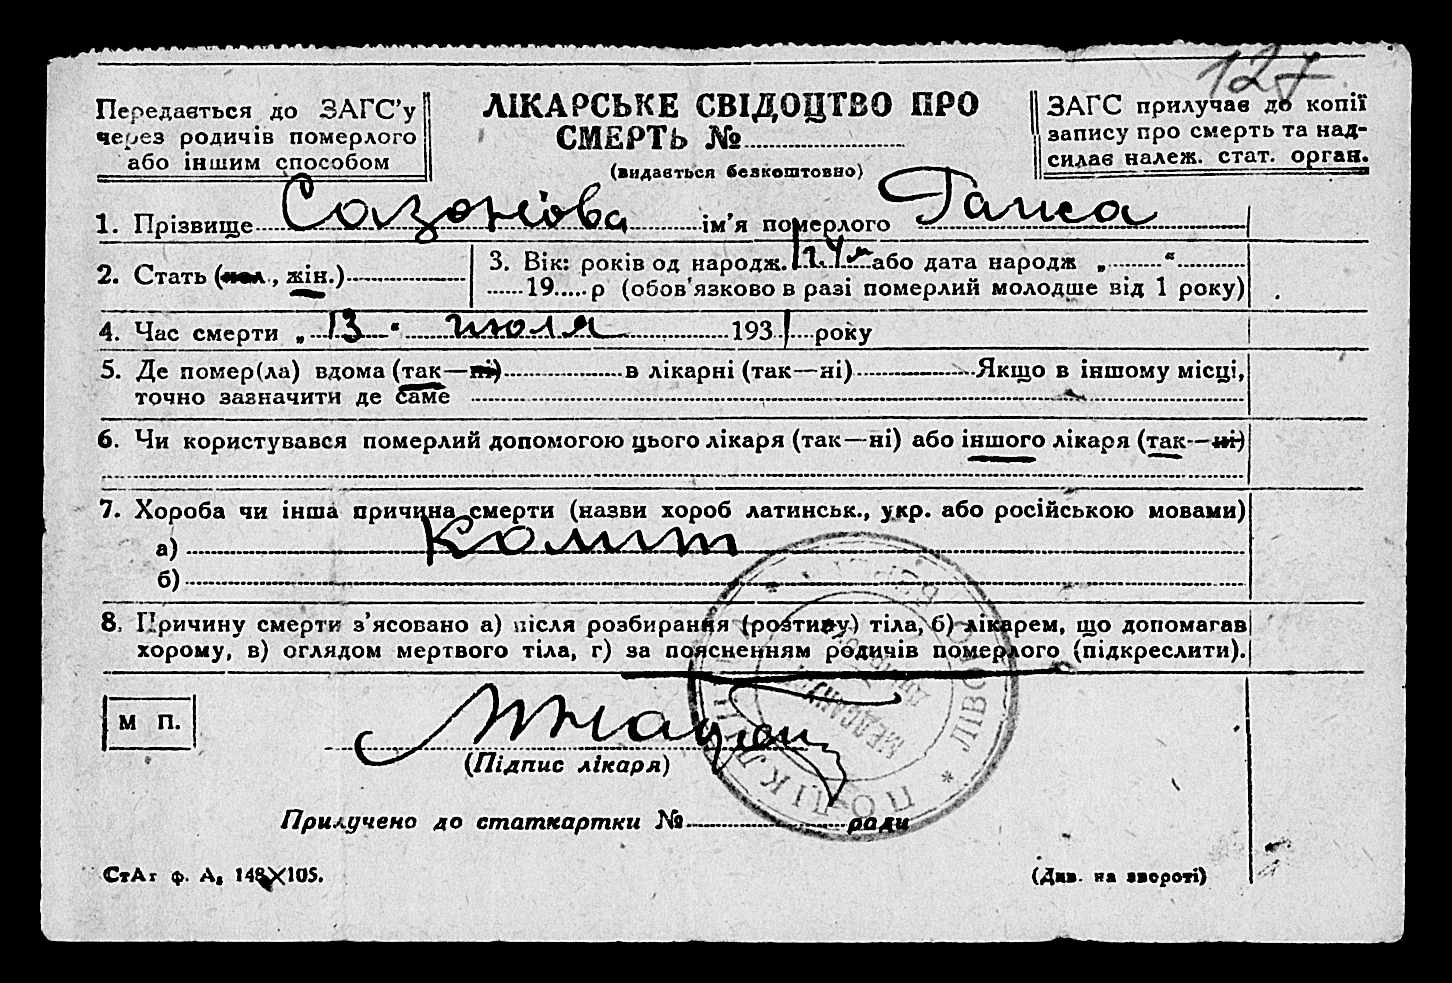 127
Передається до ЗАГС'у
через родичів померлого
або іншим способом
ЛІКАРСЬКЕ СВІДОЦТВО ПРО
СМЕРТЬ №
(видається безкоштовно)
ЗАГС прилучає до копії
запису про смерть та над-
силає належ. стат. орган.
1. Прізвище Сазонова ім'я померлого Ганна
2. Стать (чол., жін.)
3. Вік: років од народж. або дата народж „ “
19 р (обов'язково в разі померлий молодше від 1 року)
4. Час смерти „ 13 “ июля 1931 року
5. Де помер(ла) вдома (так—ні) в лікарні (так—ні) Якщо в іншому місці,
точно зазначити де саме
6. Чи користувався померлий допомогою цього лікаря (так—ні) або іншого лікаря (так—ні)
7. Хороба чи інша причина смерти (назви хороб латинськ., укр. або російською мовами)
а) Колит
б)
8. Причину смерти з'ясовано а) після розбирання (розтину) тіла, б) лікарем, що допомагав
хорому, в) оглядом мертвого тіла, г) за поясненням родичів померлого (підкреслити).
М П.
(Підпис лікаря)
Прилучено до статкартки № ради
СтАт ф. А, 148×105.
(Див. на звороті)